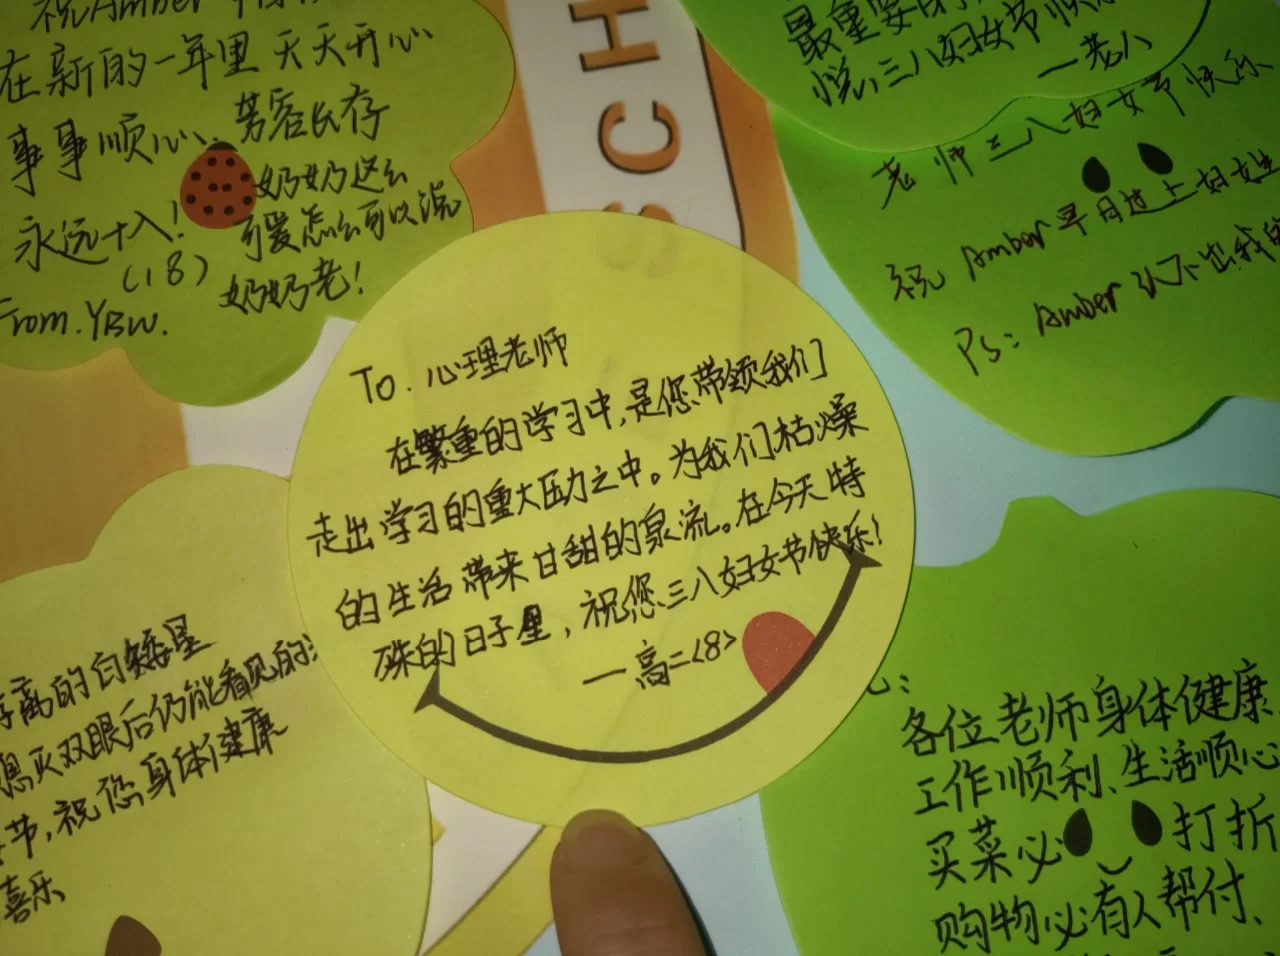 祝Amber
在新的一年里天天开心
事事顺心、芳容长存
永远十八!
(18)
From.YBW.
奶奶这么
可爱怎么可以说
奶奶老!
SCH
最重要
悦,三八妇女节快乐
一老八
老师三八妇女节快乐
祝 Amber早日过上妇女生
Ps: Amber认不出我的
To. 心理老师
在繁重的学习中,是您带领我们
走出学习的重大压力之中。为我们枯燥
的生活带来甘甜的泉流。在今天特
殊的日子里,祝您三八妇女节快乐!
—高二<8>
离的白矮星
熄灭双眼后仍能看见的
节,祝您身体健康
喜乐
各位老师身体健康
工作顺利、生活顺心
买菜必打折
购物必有人帮付、